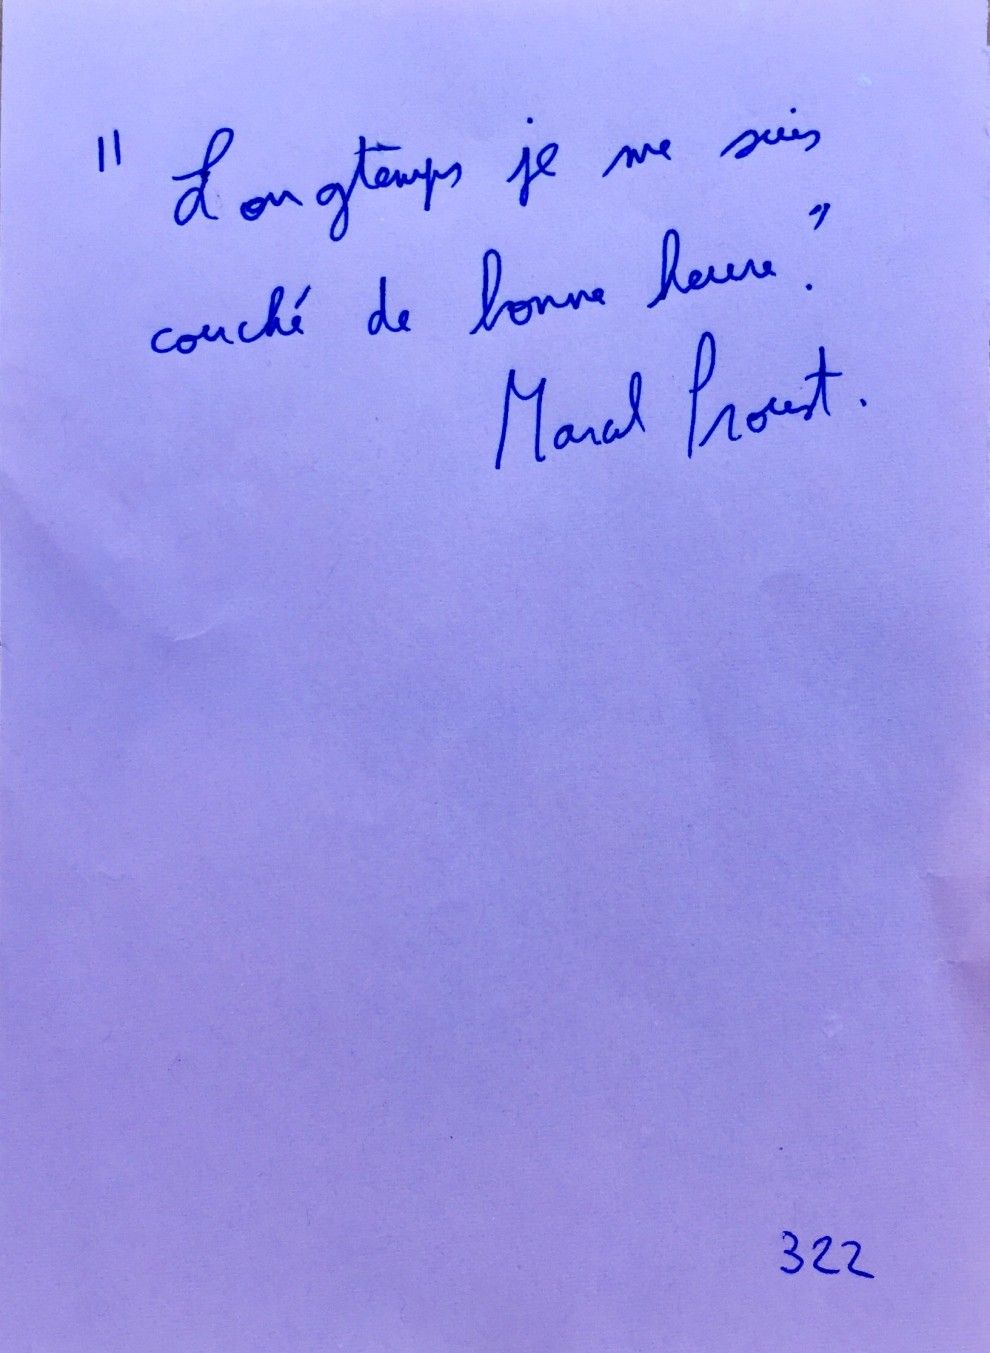 " Longtemps je me suis
couché de bonne heure."
Marcel Proust.
322